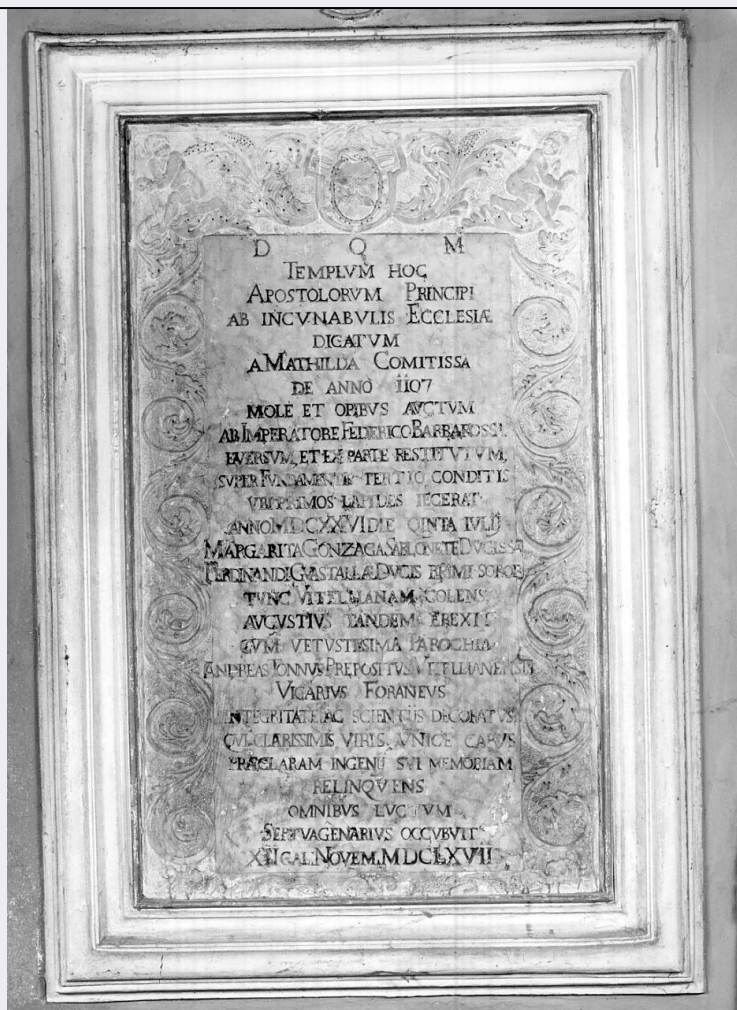 D O M
TEMPLVM HOC
APOSTOLORVM PRINCIPI
AB INCVNABVLIS ECCLESIÆ
DICATVM
A MATHILDA COMITISSA
DE ANNO 1107
MOLE ET OPIBVS AVCTVM
AB IMPERATORE FEDERICO BARBAROSSA
EVERSVM, ET EX PARTE RESTITVTVM,
SVPER FVNDAMENTIS TERTIO CONDITIS
VBI PRIMOS LAPIDES IECERAT
ANNO MDCXXVI DIE QINTA IVLIJ
MARGARITA GONZAGA SABLONETE DVCISSA
FERDINANDI GVASTALLÆ DVCIS
TVNC VITELLIANAM COLENS
AVGVSTIVS TANDEM EREXIT
CVM VETVSTISIMA PAROCHIA
ANDREAS IONNVS PREPOSITVS VITELLIANENSIS
VICARIVS FORANEVS
INTEGRITATE AC SCIENTIIS DECORATVS
QVI CLARISSIMIS VIRIS VNICE CARVS
PRÆCLARAM INGENIJ SVI MEMORIAM
RELINQVENS
OMNIBVS LVCTVM
SEPTVAGENARIVS OCCVBVIT
NOVEM. MDCLXVII